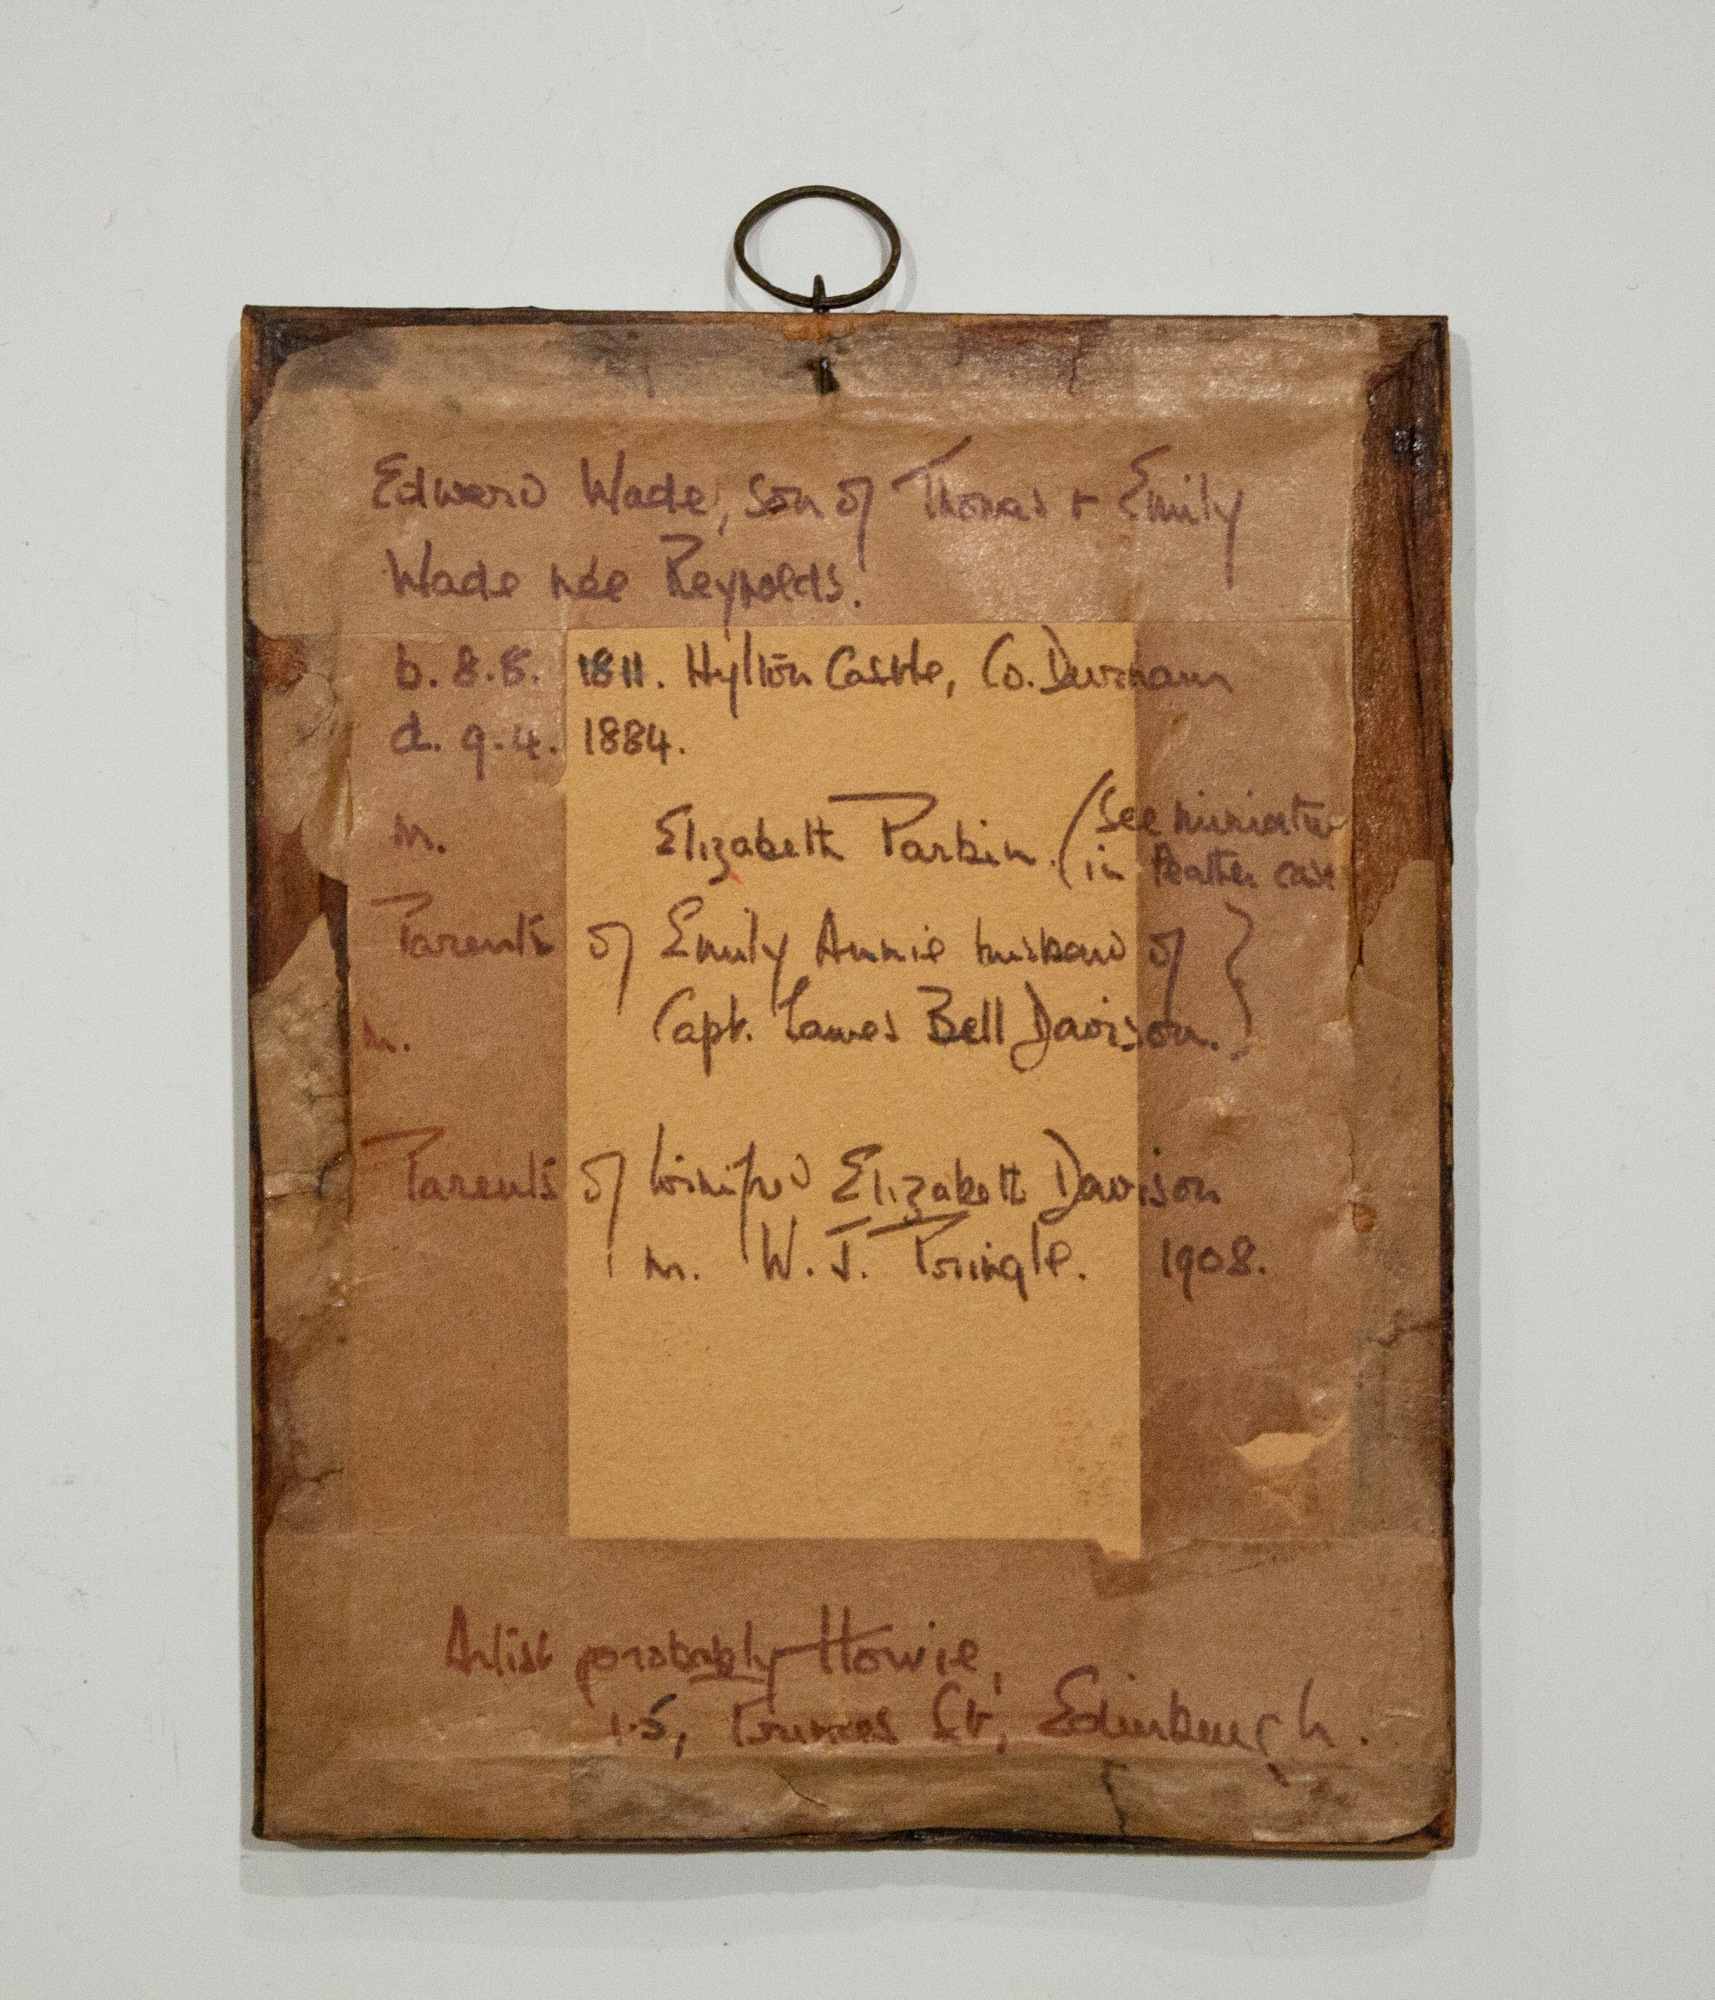 Edward Wade, son of Thomas & Emily
Wade née Reynolds.
b. 8.8. 1811. Hylton Castle, Co. Durham
d. 9.4. 1884.
m. Elizabeth Parkin. (See miniature
in leather case
Parents of Emily Annie husband of }
m. Capt. James Bell Davison.
Parents of Winifred Elizabeth Davison
m. W. J. Pringle. 1908.
Artist probably Howie,
15, Princes St, Edinburgh.